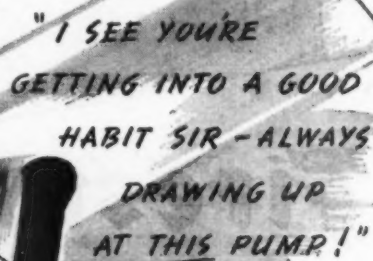 "I SEE YOU'RE
GETTING INTO A GOOD
HABIT SIR – ALWAYS
DRAWING UP
AT THIS PUMP!"